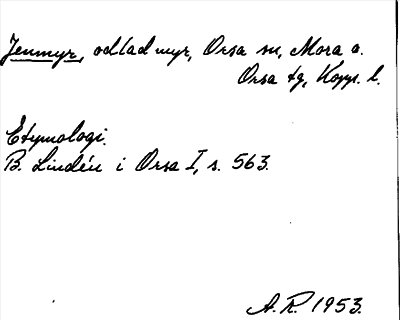 Jenmyr, odlad myr, Orsa sn, Mora o.
Orsa tg, Kopp. l.
Etymologi.
B. Lindén i Orsa I, s. 563.
A.R. 1953.